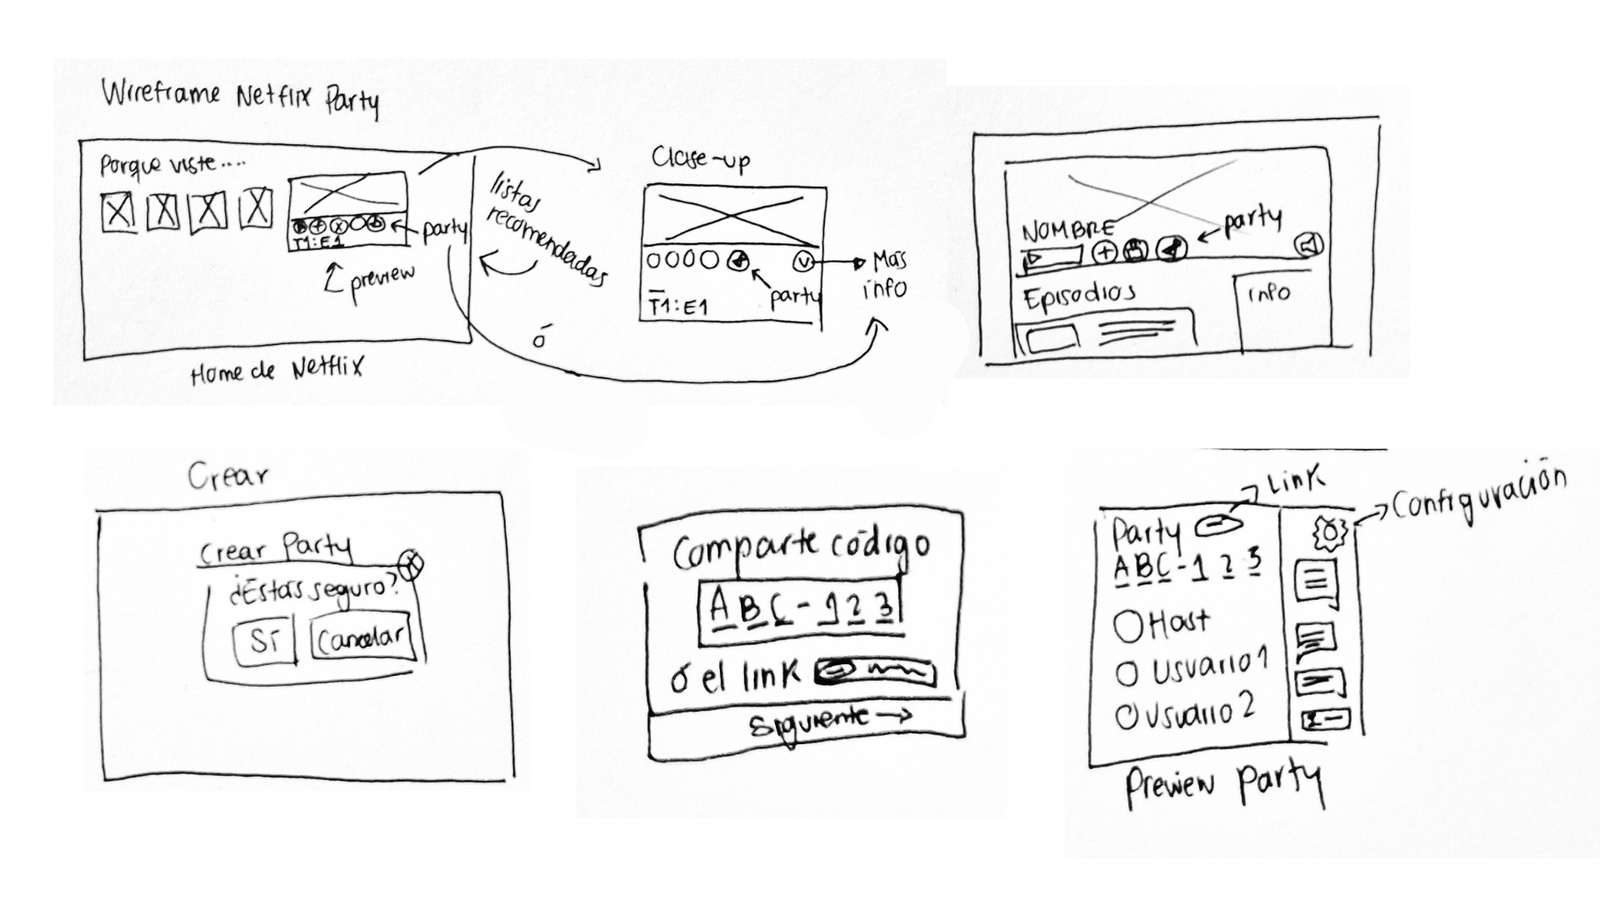 Wireframe Netflix Party
Porque viste....
T1:E1
party
preview
Home de Netflix
listas
recomendadas
ó
Close-up
T1:E1
party
Mas
info
NOMBRE
party
Episodios
info
Crear
Crear Party
X
¿Estas seguro?
Sí
Cancelar
Comparte código
ABC-123
ó el link
Siguiente →
Link
Configuración
Party
ABC-123
Host
Usuario 1
Usuario 2
Preview Party